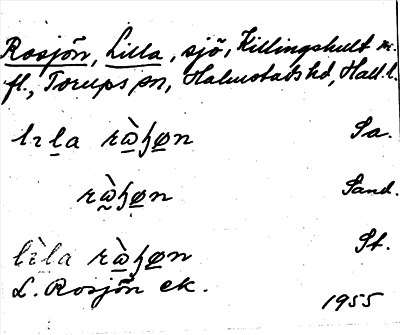 Rosjön, Lilla, sjö, Killingshult m.
fl., Torups sn, Halmstads hd, Hall. l.
lɪla rὼɧøn Sa.
rὼɧøn Sand.
lɪ̀la rὼɧøn St.
L. Rosjön ek.
1955